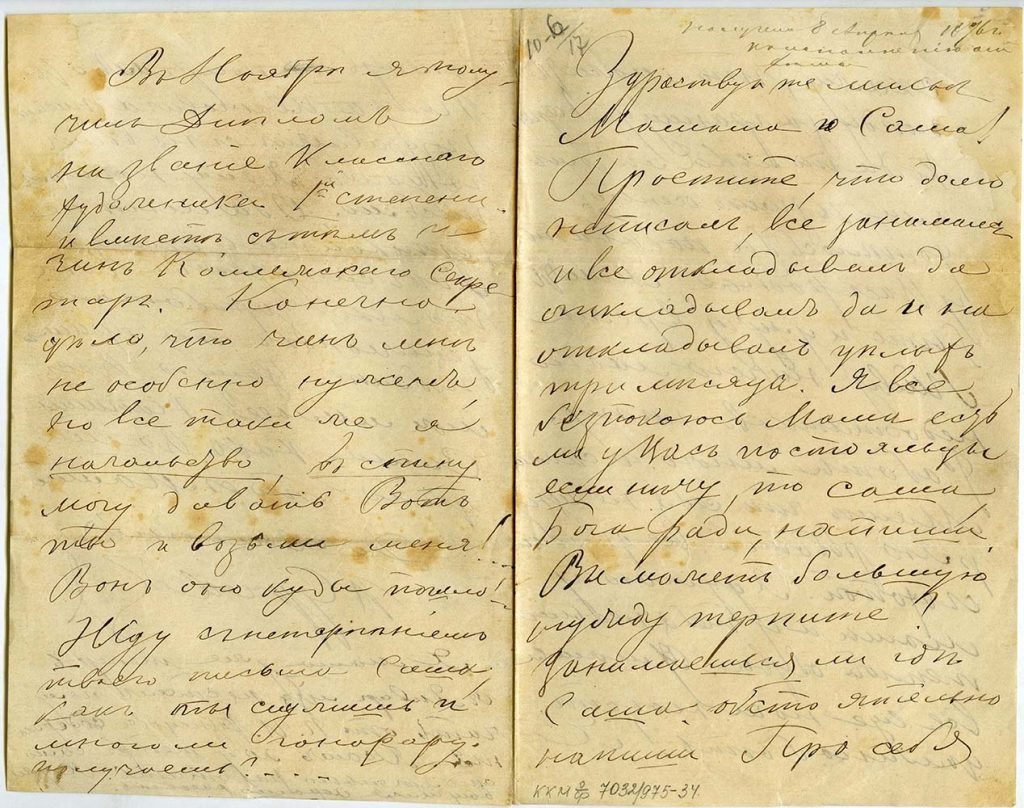 Въ Ноябрѣ я полу-
чилъ Дипломъ
на званіе Класснаго
художника 1й степени
и вмѣстѣ сътѣмъ и
чинъ Коллежскаго Секре
таря. Конечно
дѣло, что чинъ мнѣ
не особенно нуженъ,
но все таки же я
начальство, въ спину
могу давать Вотъ
ты и возьми меня!..
Вонъ оно куды пошло!..
Жду снетерпѣніемъ
твоего письма Саша,
какъ ты служишь и
много ли гонорару
получаешь?....
10-6/17
Получено 8 Апрѣля 1876 г.
Здраствуйте милыя
Мамаша и Саша!
Простите, что долго
неписалъ, все занимался
и все откладывалъ да
откладывалъ да и на
откладывалъ цѣлыхъ
три мѣсяца. Я все
безпокоюсь Мама есть
ли у Васъ постояльцы
если нѣту, то саша
Бога ради, напиши.
Вы можетъ большую
нужду терпите?
Занимаешься ли гдѣ
Саша обстоятельно
напиши Про себя
ККМ о/ф 7032/975-34